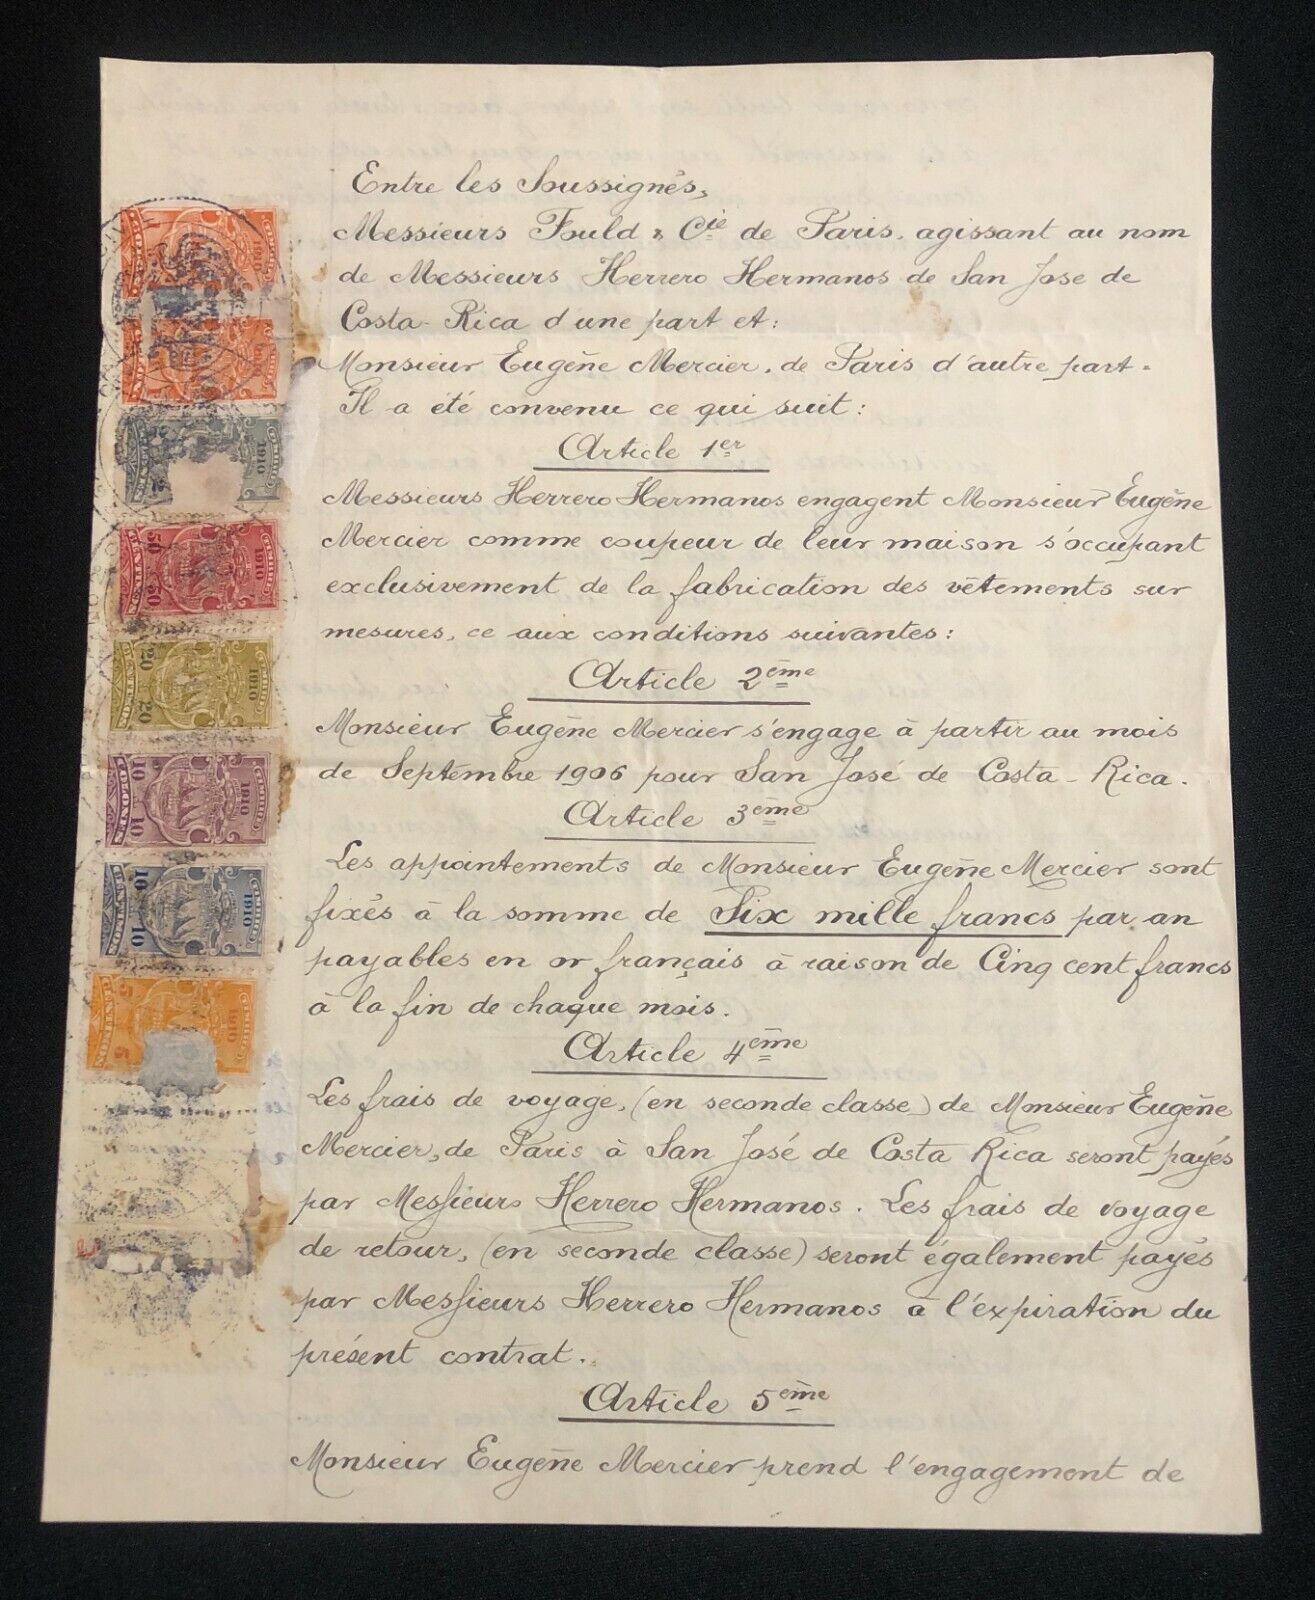 Entre les Soussignés,
Messieurs Fould & Cie de Paris, agissant au nom
de Messieurs Herrero Hermanos de San Jose de
Costa-Rica d'une part et:
Monsieur Eugène Mercier, de Paris d'autre part.
Il a été convenu ce qui suit:
Article 1er
Messieurs Herrero Hermanos engagent Monsieur Eugène
Mercier comme coupeur de leur maison s'occupant
exclusivement de la fabrication des vêtements sur
mesures, ce aux conditions suivantes:
Article 2ème
Monsieur Eugène Mercier s'engage à partir au mois
de Septembre 1906 pour San José de Costa-Rica.
Article 3ème
Les appointements de Monsieur Eugène Mercier sont
fixés à la somme de Six mille francs par an
payables en or français à raison de Cinq cent francs
à la fin de chaque mois.
Article 4ème
Les frais de voyage, (en seconde classe) de Monsieur Eugène
Mercier, de Paris à San José de Costa Rica seront payés
par Messieurs Herrero Hermanos. Les frais de voyage
de retour, (en seconde classe) seront également payés
par Messieurs Herrero Hermanos à l'expiration du
présent contrat.
Article 5ème
Monsieur Eugène Mercier prend l'engagement de
1910
1910
50 50
1910
20 20
1910
10 10
1910
10 10
1910
5 5